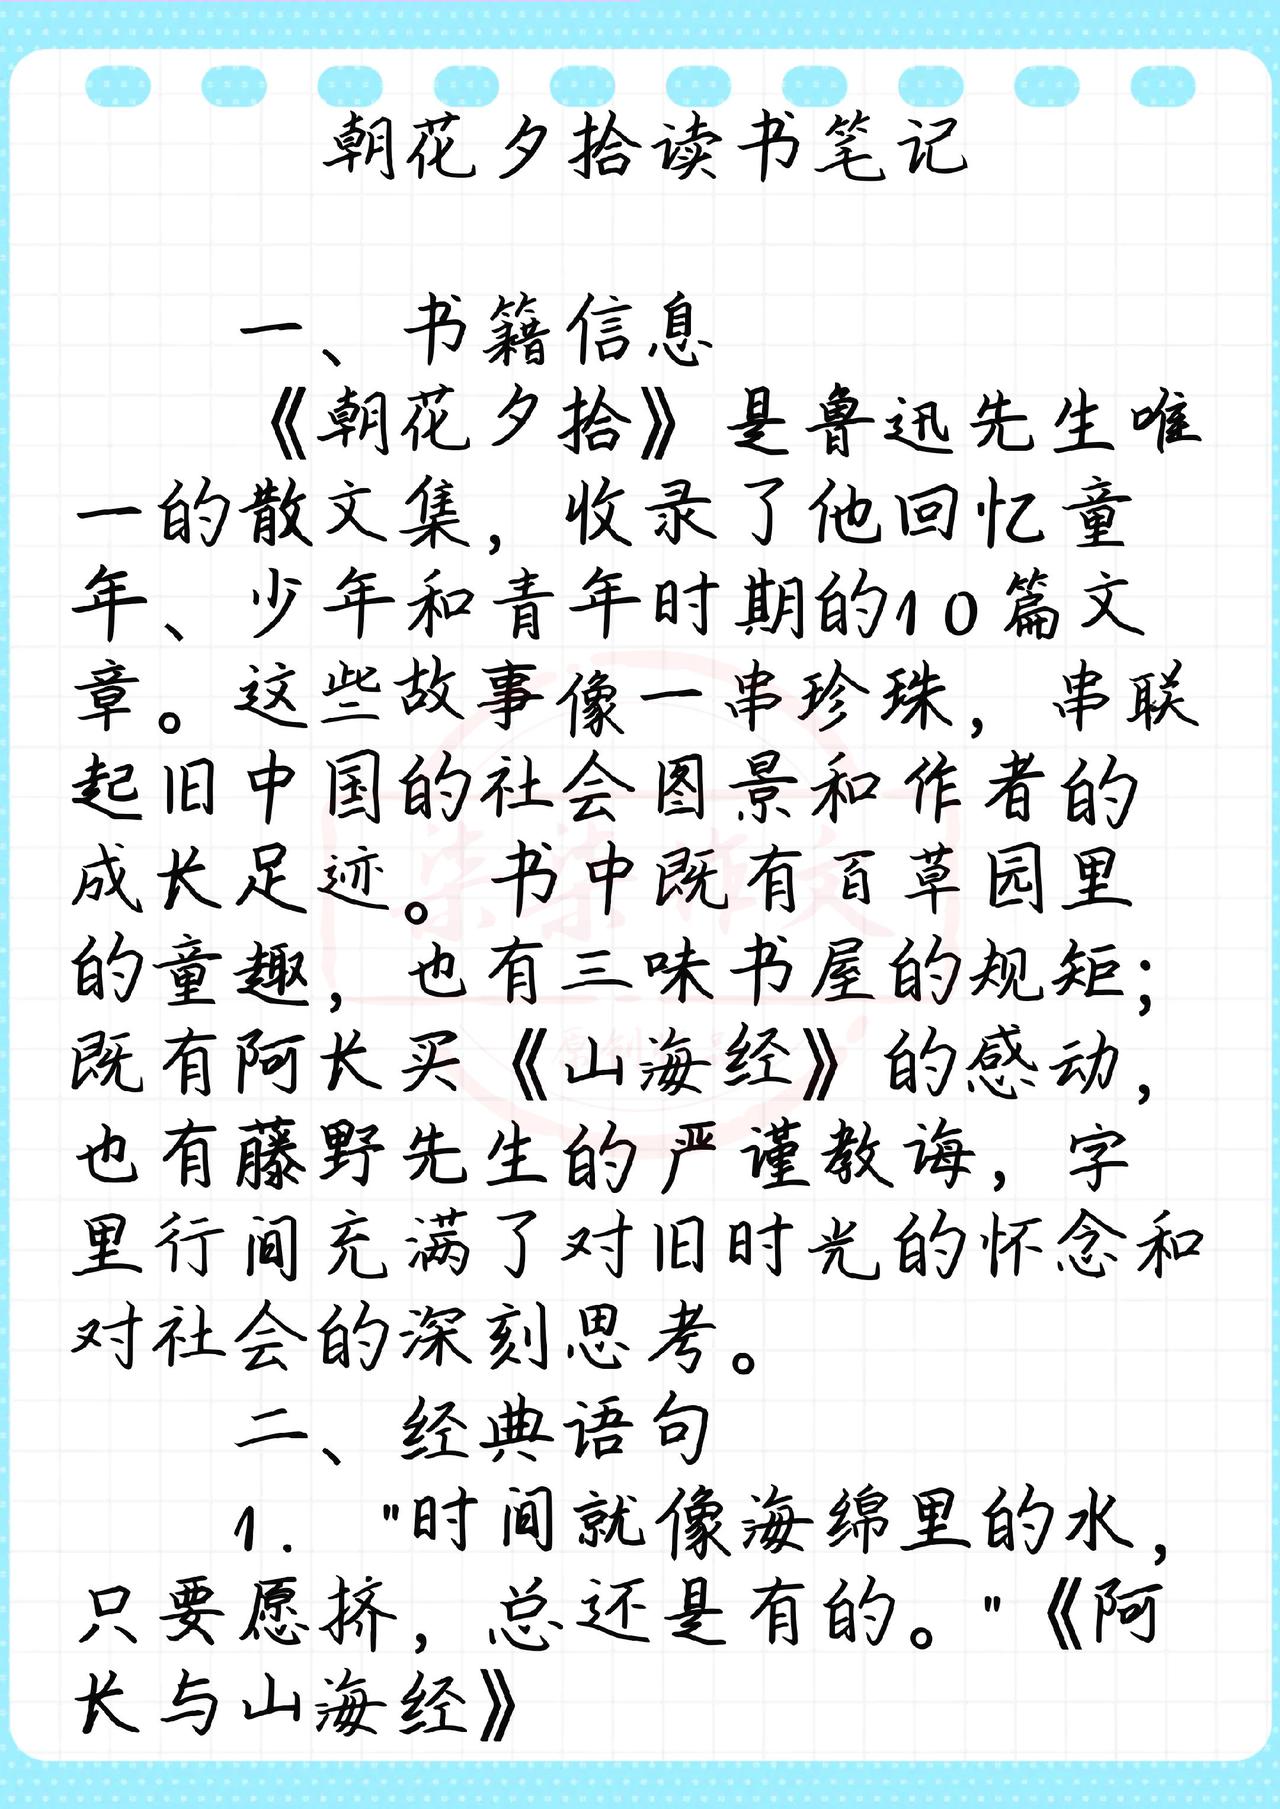 朝花夕拾读书笔记
一、书籍信息
《朝花夕拾》是鲁迅先生唯
一的散文集，收录了他回忆童
年、少年和青年时期的10篇文
章。这些故事像一串珍珠，串联
起旧中国的社会图景和作者的
成长足迹。书中既有百草园里
的童趣，也有三味书屋的规矩；
既有阿长买《山海经》的感动，
也有藤野先生的严谨教诲，字
里行间充满了对旧时光的怀念和
对社会的深刻思考。
二、经典语句
1. "时间就像海绵里的水，
只要愿挤，总还是有的。"《阿
长与山海经》